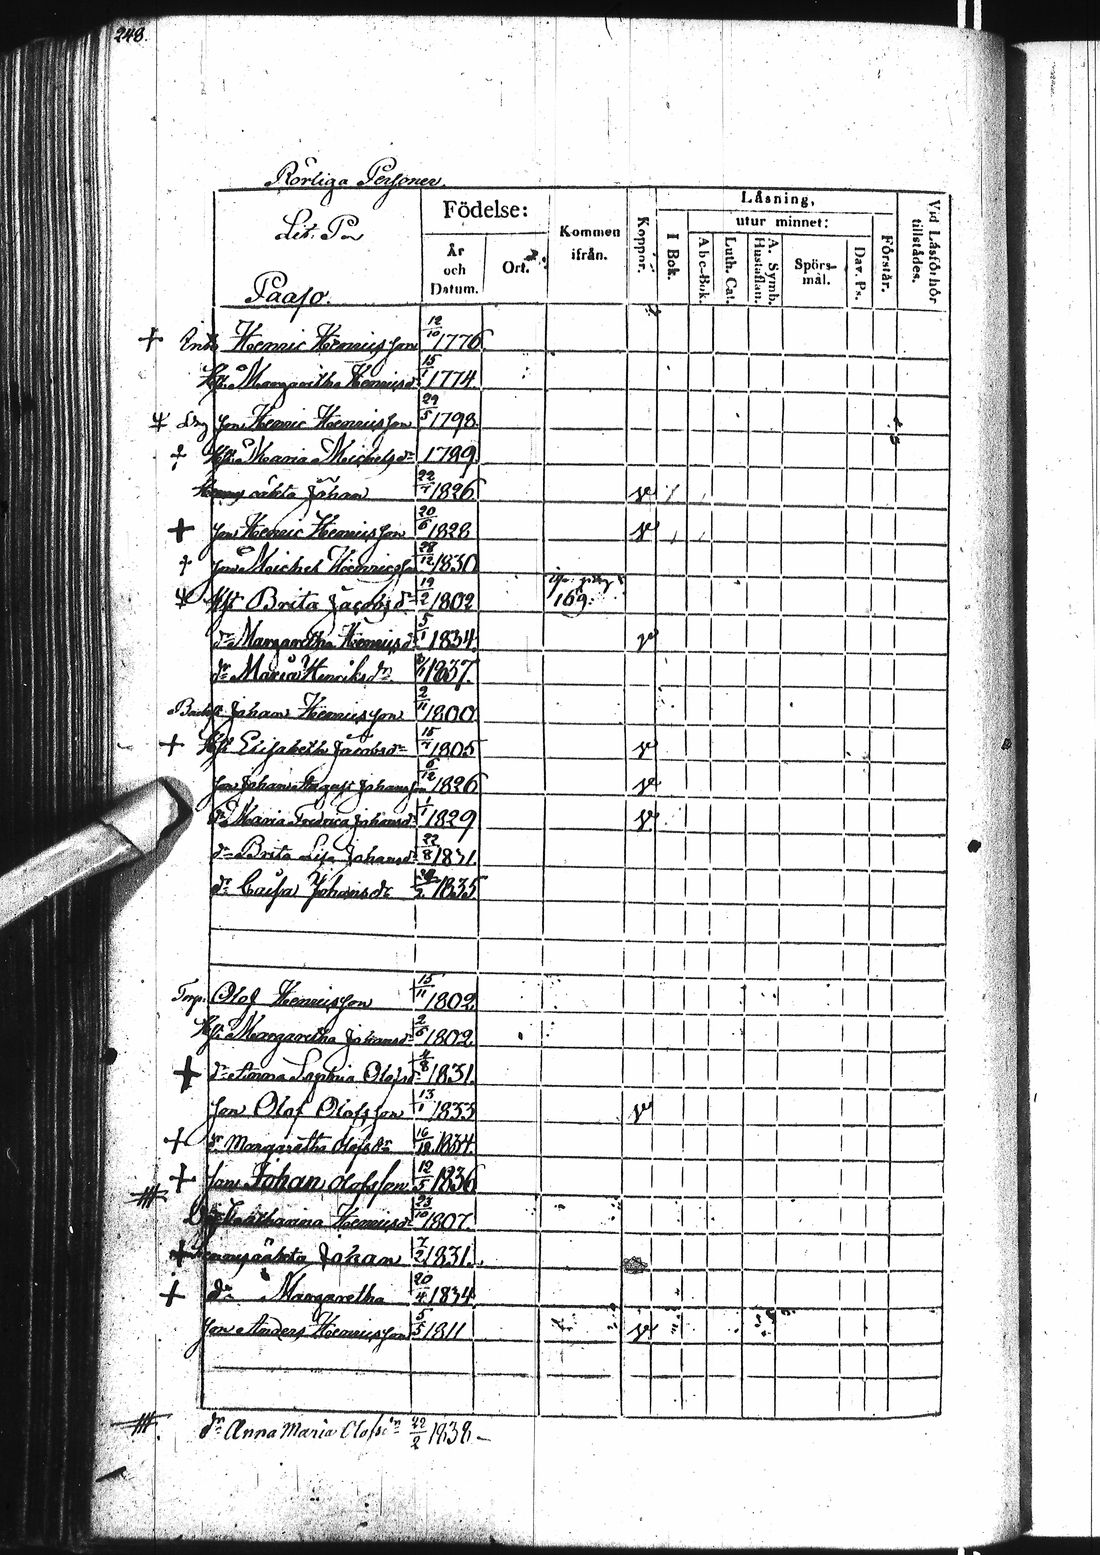 248.
Rörliga Personer.
Lit. P
Paaso.
Födelse:
År och Datum.
Ort.
Kommen ifrån.
Koppor.
Läsning,
I Bok.
utur minnet:
Abc-Bok.
Luth. Cat.
A. Symb. Hustaflan.
Spörs-mål.
Dav. Ps.
Förstår.
Vid Läsförhör tillstädes.
+ Henric Henricsson 12/10 1776
Margaretha Henricsdr 15/1 1774
Son Henric Henricsson 29/5 1798
+ Maria Michelsdr 1789
oäkta Johan 22/4 1826 v
+ Son Henric Henricsson 20/6 1828 v
+ Son Michel Henricsson 28/12 1830
Brita Jacobsdr 19/2 1802 169.
dr Margaretha Henricsdr 5/1 1834 v
dr Maria Henriksdr 1837.
Johan Henricsson 2/11 1800
+ Elisabeth Jacobsdr 15/4 1805 v
Son Johan August Johansson 6/12 1826 v
dr Maria Fredrica Johansdr 1/1 1829 v
dr Brita Lisa Johansdr 22/8 1831
dr Caisa Johansdr 1835
Torp. Olof Henricsson 15/11 1802
Margaretha Johansdr 2/6 1802
+ dr Anna Sophia Olofsdr 4/8 1831
Son Olof Olofsson 13/1 1833 v
+ dr Margaretha Olofsdr 16/12 1834
+ Son Johan Olofsson 12/5 1836
Catharina Henricsdr 23/10 1807
+ oäkta Johan 7/2 1831.
+ dr Margaretha 20/4 1834
Son Anders Henricsson 5/5 1811 v
dr Anna Maria Olofsdn 22/2 1838